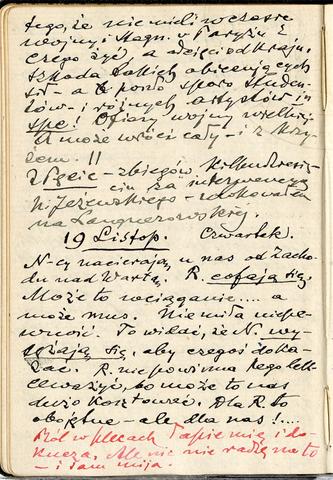 tego, że nie mieli w czasie
wojny i stagn. w Paryżu z
czego żyć, a odcięci od kraju.
Szkoda takich obiecujących
sił – a sporo studen-
tów – i różnych artystów in
spe! Ofiary wojny wielkiej
A może wróci cały – i z krzy-
żem. !!
Zgeie – zbiegów Kilkudziesię-
ciu za interwencyą
ks Jeżewskiego – ulokowałem
na Langnerowskiej.
19 Listop. Czwartek.
N-cy nacierają u nas od Zacho-
du nad Wartą, R. cofają się.
Może to wciąganie.... a
może mus. Niemiła niepe-
wność. To widać, że N. wy-
się, aby czegoś doka-
zać. R. nie powinna tego lek-
ceważyć, bo może to nas
dużo kosztować. Dla R. to
obojętne – ale dla nas !....
Ból w plecach łapie mię i do-
kucza. Ale nic nie radzę na to
– i sam mija.